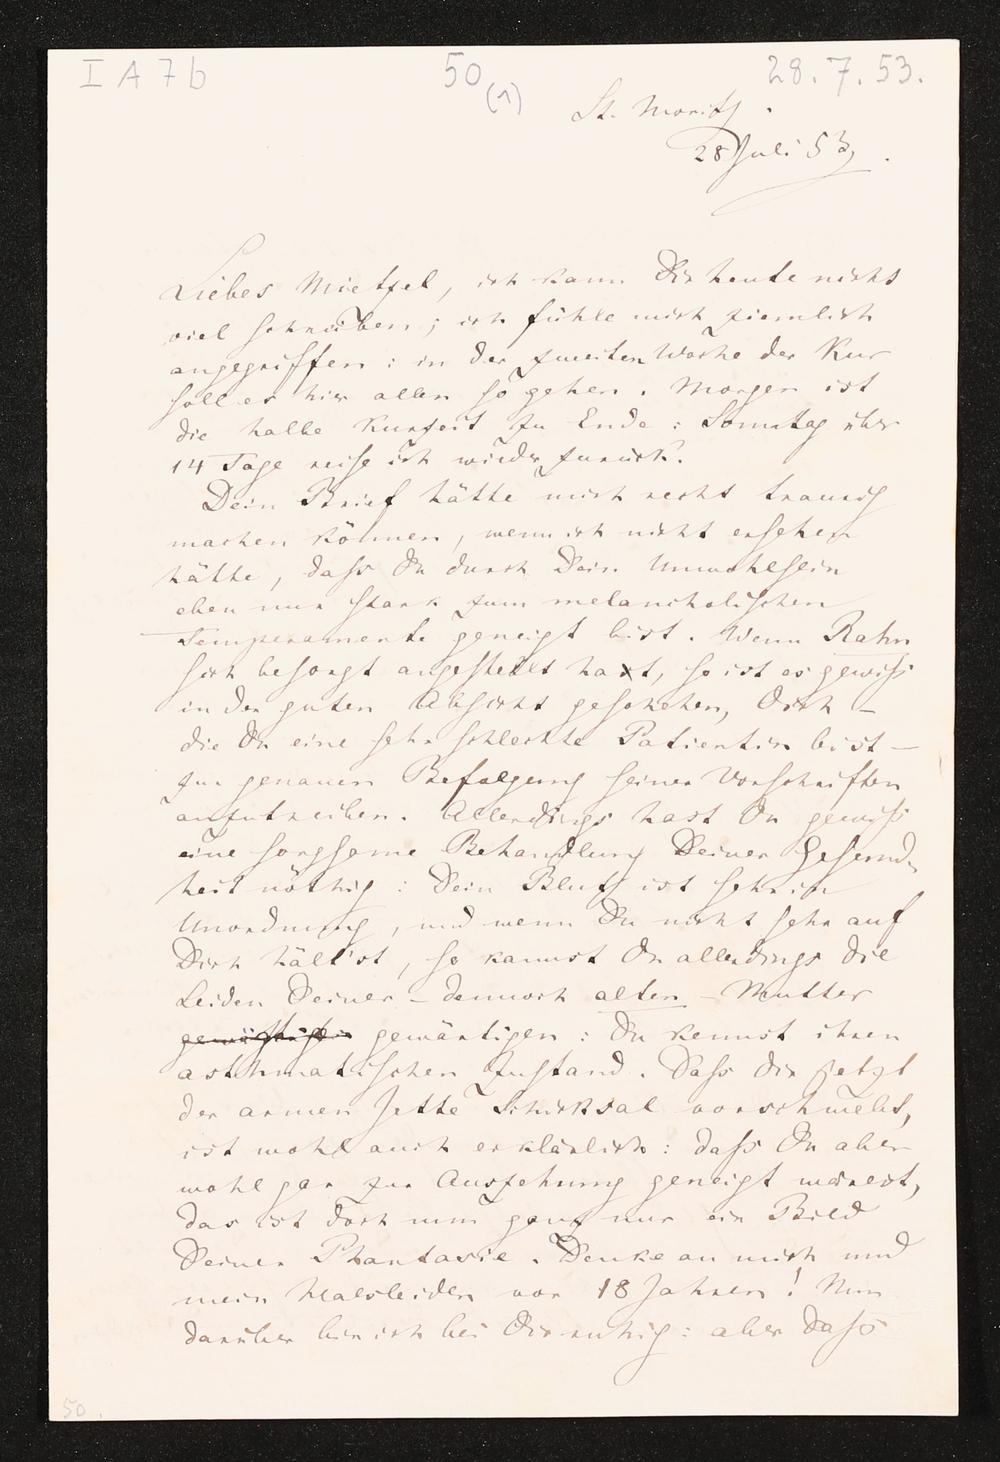 I A 7 b
50
(1)
28.7.53.
St. Moritz.
28 Juli 53.
Liebes Mietzel, ich kann Dir heute nicht
viel schreiben; ich fühle mich ziemlich
angegriffen: in der zweiten Woche der Kur
soll es hier allen so gehen. Morgen ist
die halbe Kurzeit zu Ende: Sonntag über
14 Tage reise ich wieder zurück.
Dein Brief hätte mich recht traurig
machen können, wenn ich nicht ersehen
hätte, dass Du durch Dein Unwohlsein
eben nur stark zum melancholischen
Temperamente geneigt bist. Wenn Rahn
sich besorgt angestellt hat, so ist es gewiss
in der guten Absicht geschehen, Dich –
die Du eine sehr schlechte Patientin bist –
zur genauen Befolgung seiner Vorschriften
anzutreiben. Allerdings hast Du gewiss
eine sorgsame Behandlung Deiner Gesund-
heit nöthig: Dein Blut ist sehr in
Unordnung, und wenn Du nicht sehr auf
Dich hält'st, so kannst Du allerdings die
Leiden Deiner – dennoch alten – Mutter
gewärtigen: Du kennst ihren
asthmatischen Zustand. Dass Dir jetzt
der armen Jette Schicksal vorschwebt,
ist wohl auch erklärlich: dass Du aber
wohl gar zur Auszehrung geneigt wärest,
das ist doch nun ganz nur ein Bild
Deiner Phantasie. Denke an mich und
mein Halsleiden vor 18 Jahren! Nun
darüber bin ich bei Dir ruhig: aber dass
50.